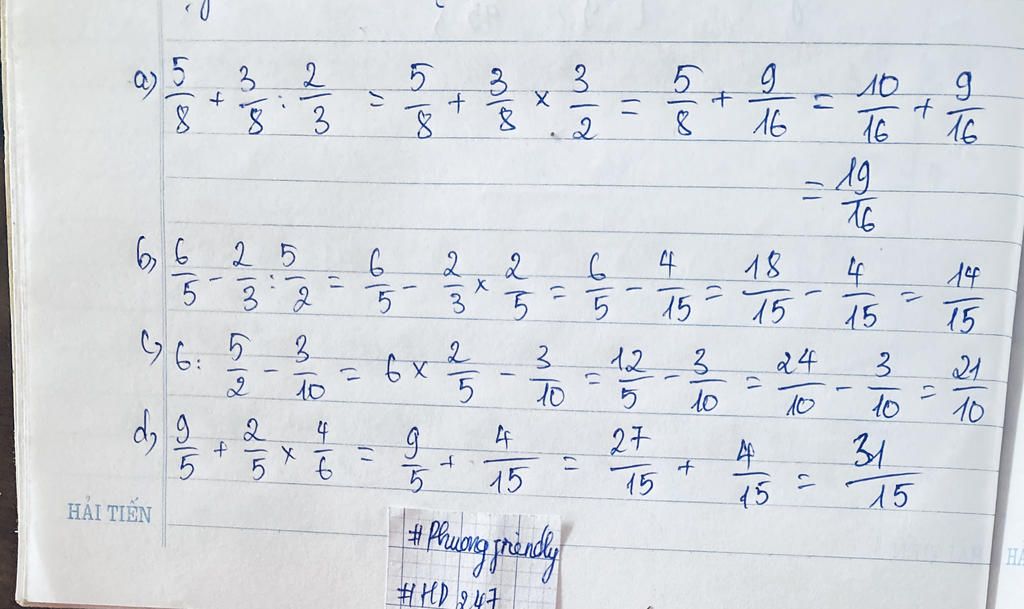 a) 5/8 + 3/8 : 2/3 = 5/8 + 3/8 × 3/2 = 5/8 + 9/16 = 10/16 + 9/16
= 19/16
b) 6/5 - 2/3 : 5/2 = 6/5 - 2/3 × 2/5 = 6/5 - 4/15 = 18/15 - 4/15 = 14/15
c) 6 : 5/2 - 3/10 = 6 × 2/5 - 3/10 = 12/5 - 3/10 = 24/10 - 3/10 = 21/10
d) 9/5 + 2/5 × 4/6 = 9/5 + 4/15 = 27/15 + 4/15 = 31/15
HẢI TIẾN
#Phuongfriendly
#HD 247